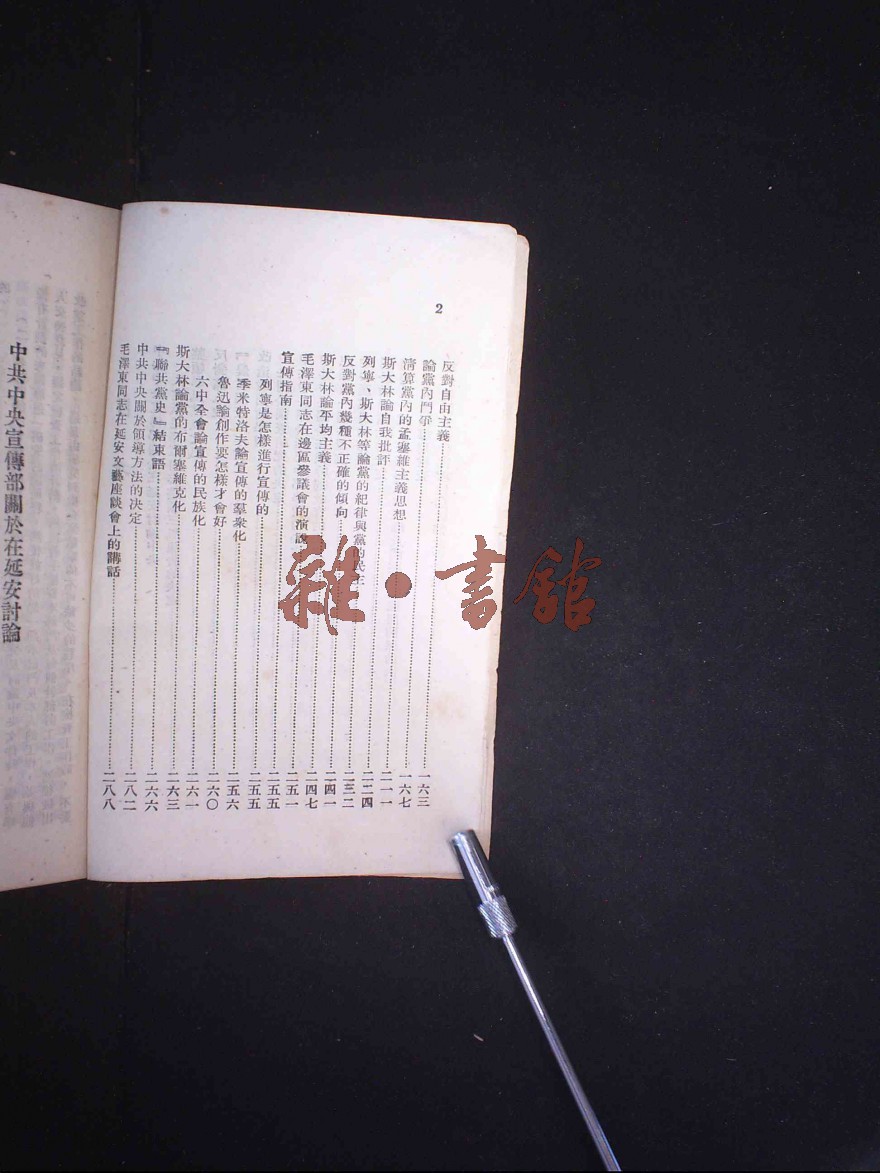 2
反對自由主義……一六三
論黨內鬥爭……一六七
清算黨內的孟塞維主義思想……二一一
斯大林論自我批評……二二四
列寧、斯大林等論黨的紀律與黨的民……二三二
反對黨內幾種不正確的傾向……二四一
斯大林論平均主義……二四七
毛澤東同志在邊區參議會的演說……二五一
宣傳指南……二五五
列寧是怎樣進行宣傳的……二五五
季米特洛夫論宣傳的羣衆化……二五六
魯迅論創作要怎樣才會好……二六〇
六中全會論宣傳的民族化……二六一
斯大林論黨的布爾塞維克化……二六三
『聯共黨史』結束語……二六六
中共中央關於領導方法的决定……二八二
毛澤東同志在延安文藝座談會上的講話……二八八
中共中央宣傳部關於在延安討論
雜·書館